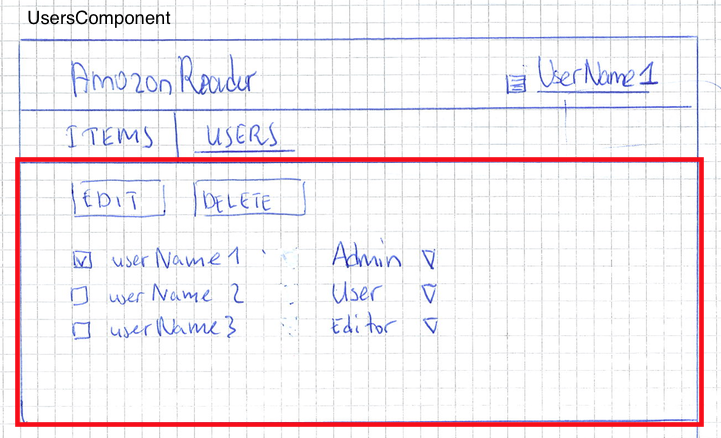 UsersComponent
AmazonReader UserName1
ITEMS USERS
EDIT DELETE
userName1 Admin
userName 2 User
userName3 Editor